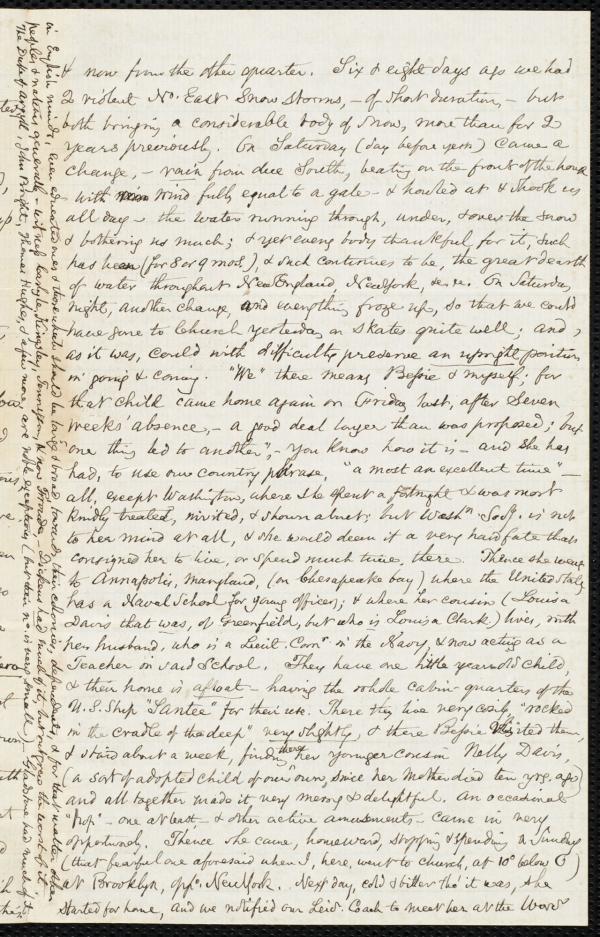 & now from the other quarter. Six & eight days ago we had
2 violent No. East Snow Storms, - of short duration, - but
both bringing a considerable body of snow, more than for 2
years previously. On Saturday (day before yesty) came a
change, - rain from due South, beating on the front of the house
with wind fully equal to a gale - & howled at & shook us
all day - the water running through, under, & over the snow
& bothering us much; & yet every body thankful for it, such
has been (for 8 or 9 mos.) & such continues to be, the great dearth
of water throughout New England, New York, &c. &c. On Saturday
night, another change, and everything froze up, so that we could
have gone to Church yesterday on skates quite well; and,
as it was, could with difficulty preserve an upright position
in going & coming. "We" there means Bessie & myself; for
that child came home again on Friday last, after Seven
weeks' absence, - a good deal longer than was proposed; but
"one thing led to another", - you know how it is - and she has
had, to use our country phrase, "a most an excellent time" -
all, except Washington, where she spent a fortnight & was most
kindly treated, invited, & shown about; but Washn. Socy. is not
to her mind at all, & she would deem it a very hard fate that
consigned her to live, or spend much time, there. Thence she went
to Annapolis, Maryland, (on Chesapeake bay) where the United States
has a Naval School for young officers; & where her cousin (Louisa
Davis that was, of Greenfield, but who is Louisa Clark) lives, with
her husband, who is a Lieut. Comr. in the Navy, & now acting as a
Teacher in said School. They have one little year old child,
& their home is afloat - having the whole cabin quarters of the
U.S. Ship "Santee" for their use. There they live very cosily, "rocked
in the cradle of the deep" very slightly, & there Bessie visited them,
& staid about a week, finding there her younger cousin Nelly Davis,
(a sort of adopted child of our own, since her Mother died ten yrs. ago)
and all together made it very merry & delightful. An occasional
"hop" - one at least - & other active amusements - came in very
opportunely. Thence she came, homeward, stopping & spending a Sunday
(that fearful one aforesaid when I, here, went to church, at 10° below 0)
at Brooklyn, opp. New York. Next day, cold & bitter tho' it was, she
started for home, and we notified our Leicr. Coach to meet her at the Worcr
in English minds, even educated ones & those which should be large & broad toward their colonies, dependents, & for that matter other
peoples & nations generally - witness Carlyle, Kingsley, Tennyson, & now Froude - Dickens had much of it, but outgrew the worst of it
The Duke of Argyll, John Bright, Thomas Hughes, & a few more, are noble exceptions (but their no. is very small) - Gladstone had much of it